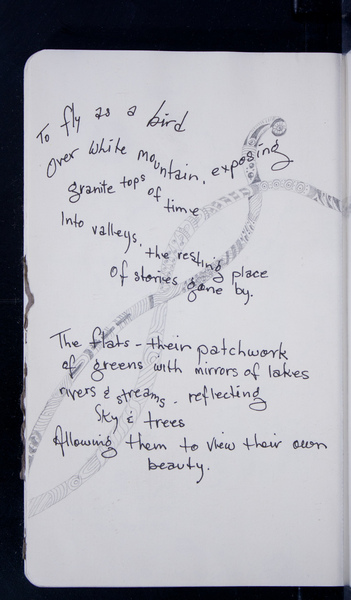 To fly as a bird
Over White Mountain, exposing
granite tops of time
Into valleys, the resting place
Of stories gone by.
The flats - their patchwork
of greens with mirrors of lakes
rivers & streams - reflecting
Sky & trees
Allowing them to view their own
beauty.